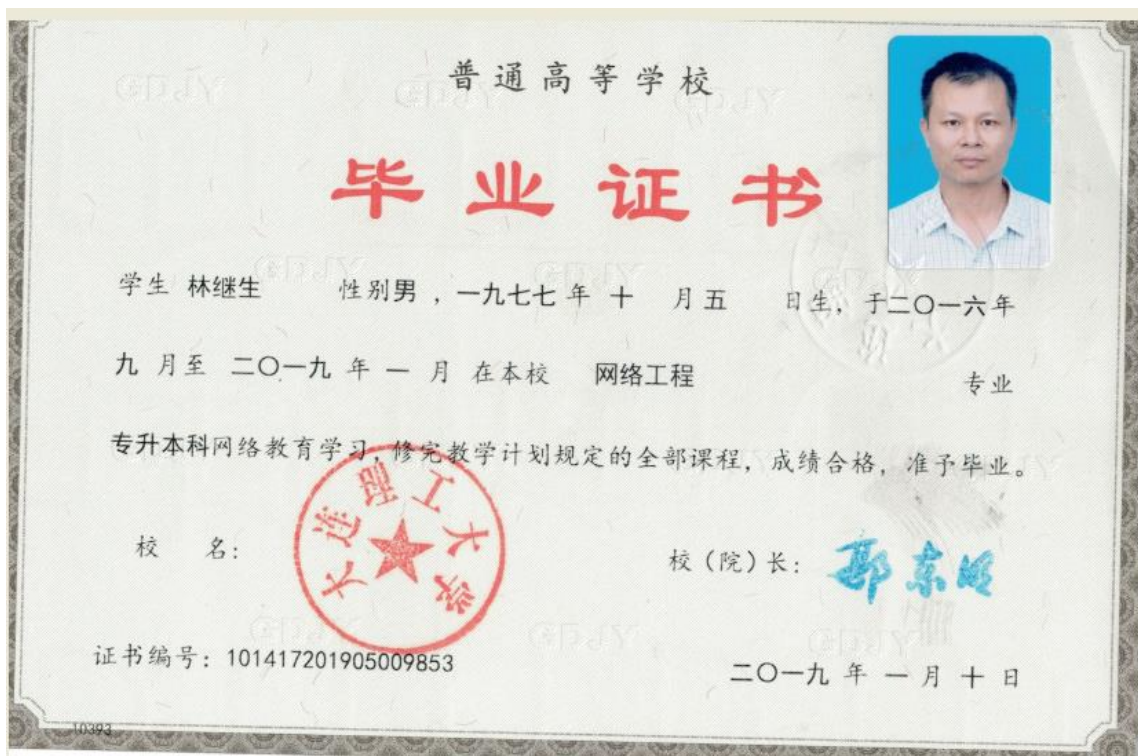 普通高等学校
毕业证书
学生 林继生 性别男，一九七七年 十 月五 日生，于二〇一六年
九 月至 二〇一九 年 一 月 在本校 网络工程 专业
专升本科网络教育学习，修完教学计划规定的全部课程，成绩合格，准予毕业。
大连理工大学
校 名：
校（院）长： 郭东明
证书编号：101417201905009853
二〇一九 年 一 月 十 日
10393